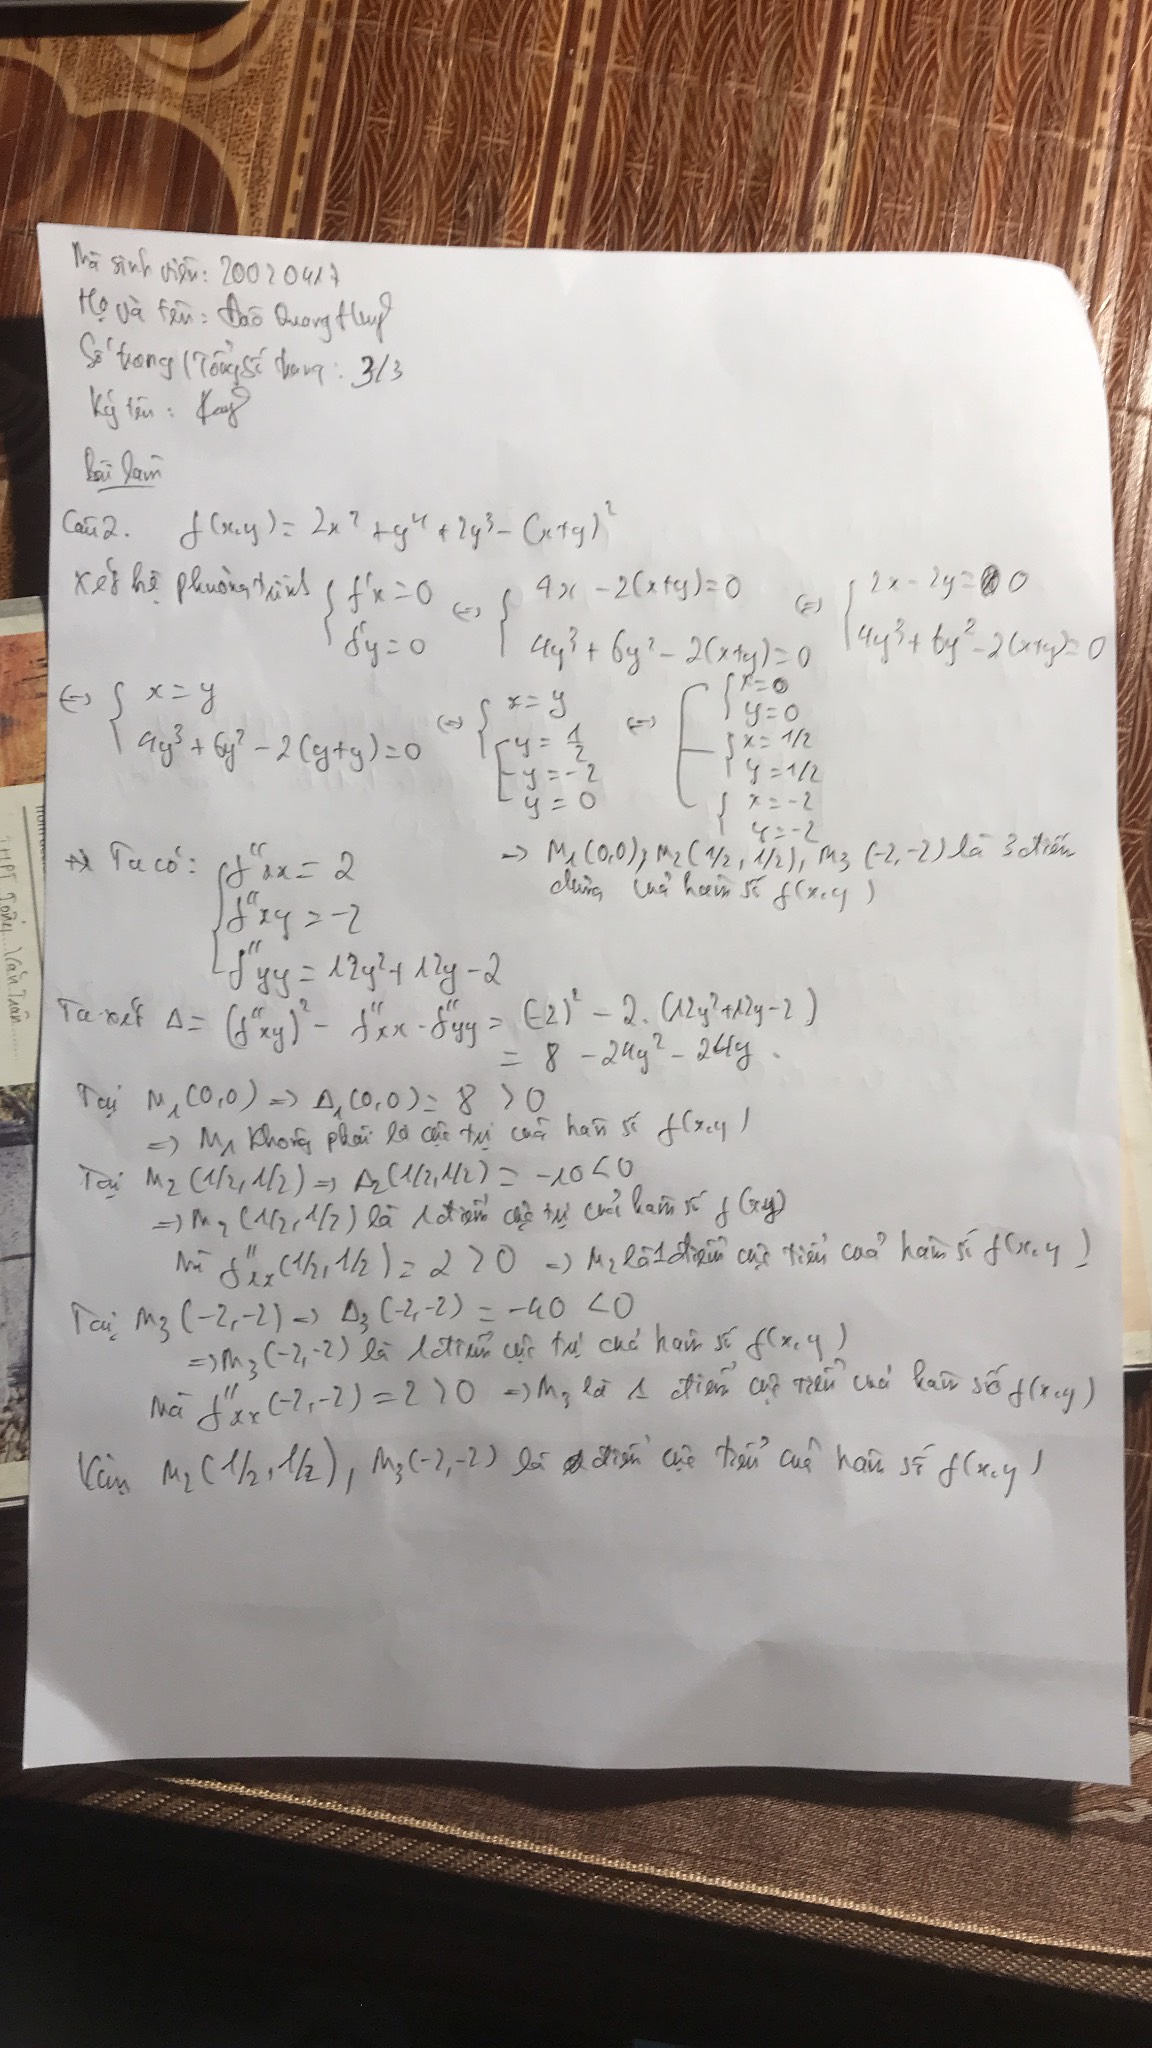 Mã sinh viên: 20020417
Họ và tên: Đào Quang Huy
Số trang/Tổng số trang: 3/3
Ký tên: Huy
Bài làm
Câu 2. f(x,y) = 2x² + y⁴ + 2y³ - (x+y)²
Xét hệ phương trình { f'x = 0 ; f'y = 0 ⇔ { 4x - 2(x+y) = 0 ; 4y³ + 6y² - 2(x+y) = 0 ⇔ { 2x - 2y = 0 ; 4y³ + 6y² - 2(x+y) = 0
⇔ { x = y ; 4y³ + 6y² - 2(y+y) = 0 ⇔ { x = y ; [ y = 1/2 ; y = -2 ; y = 0 ⇔ [ { x = 0 ; y = 0 ; { x = 1/2 ; y = 1/2 ; { x = -2 ; y = -2
⇒ M₁(0,0); M₂(1/2, 1/2), M₃(-2,-2) là 3 điểm
dừng của hàm số f(x,y)
Ta có: { f''xx = 2
f''xy = -2
f''yy = 12y² + 12y - 2
Ta xét Δ = (f''xy)² - f''xx . f''yy = (-2)² - 2.(12y²+12y-2)
= 8 - 24y² - 24y.
Tại M₁(0,0) ⇒ Δ₁(0,0) = 8 > 0
⇒ M₁ không phải là cực trị của hàm số f(x,y)
Tại M₂(1/2,1/2) ⇒ Δ₂(1/2,1/2) = -10 < 0
⇒ M₂(1/2,1/2) là 1 điểm cực trị của hàm số f(xy)
Mà f''xx(1/2,1/2) = 2 > 0 ⇒ M₂ là 1 điểm cực tiểu của hàm số f(x,y)
Tại M₃(-2,-2) ⇒ Δ₃(-2,-2) = -40 < 0
⇒ M₃(-2,-2) là 1 điểm cực trị của hàm số f(x,y)
Mà f''xx(-2,-2) = 2 > 0 ⇒ M₃ là 1 điểm cực tiểu của hàm số f(x,y)
Vậy M₂(1/2,1/2), M₃(-2,-2) là điểm cực tiểu của hàm số f(x,y)